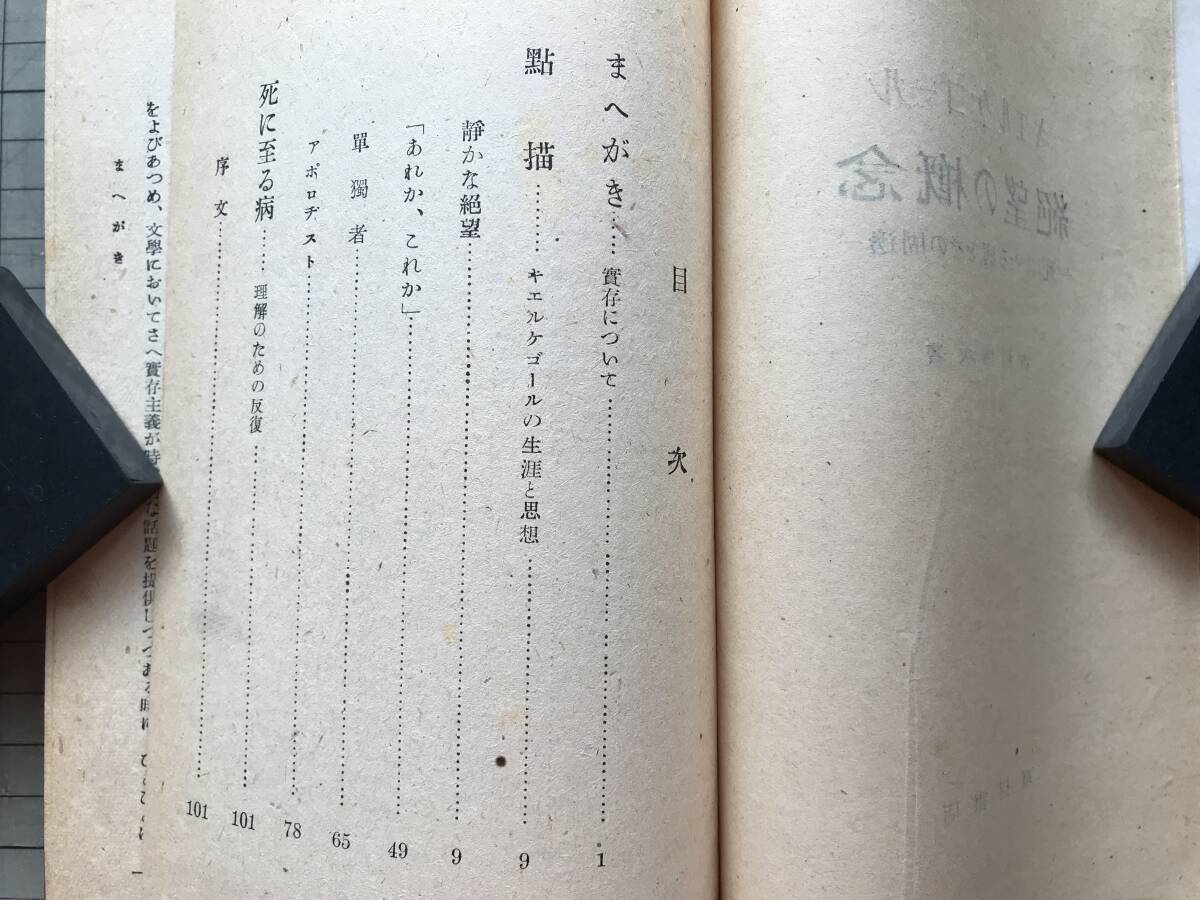 目次
まへがき……實存について……1
點描……キエルケゴールの生涯と思想……9
靜かな絕望……9
「あれか、これか」……49
單獨者……65
アポロヂスト……78
死に至る病……理解のための反復……101
序文……101
をよびあつめ、文學においてさへ實存主義が時
な話題を提供しつつある時に
まへがき
一
キエルケゴール
絕望の概念